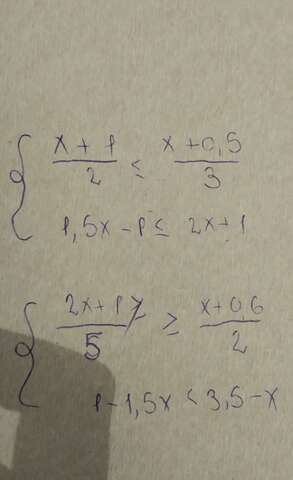 x + 1 / 2 ≤ x + 0,5 / 3
1,5x - 1 ≤ 2x + 1
2x + 1 / 5 ≥ x + 0,6 / 2
1 - 1,5x < 3,5 - x